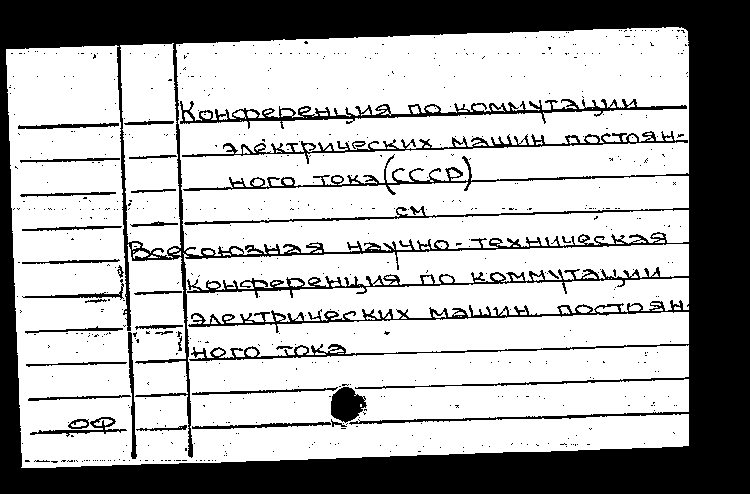 Конференция по коммутации
электрических машин постоян-
ного тока (СССР)
см
Всесоюзная научно-техническая
конференция по коммутации
электрических машин постоян-
ного тока
ОФ